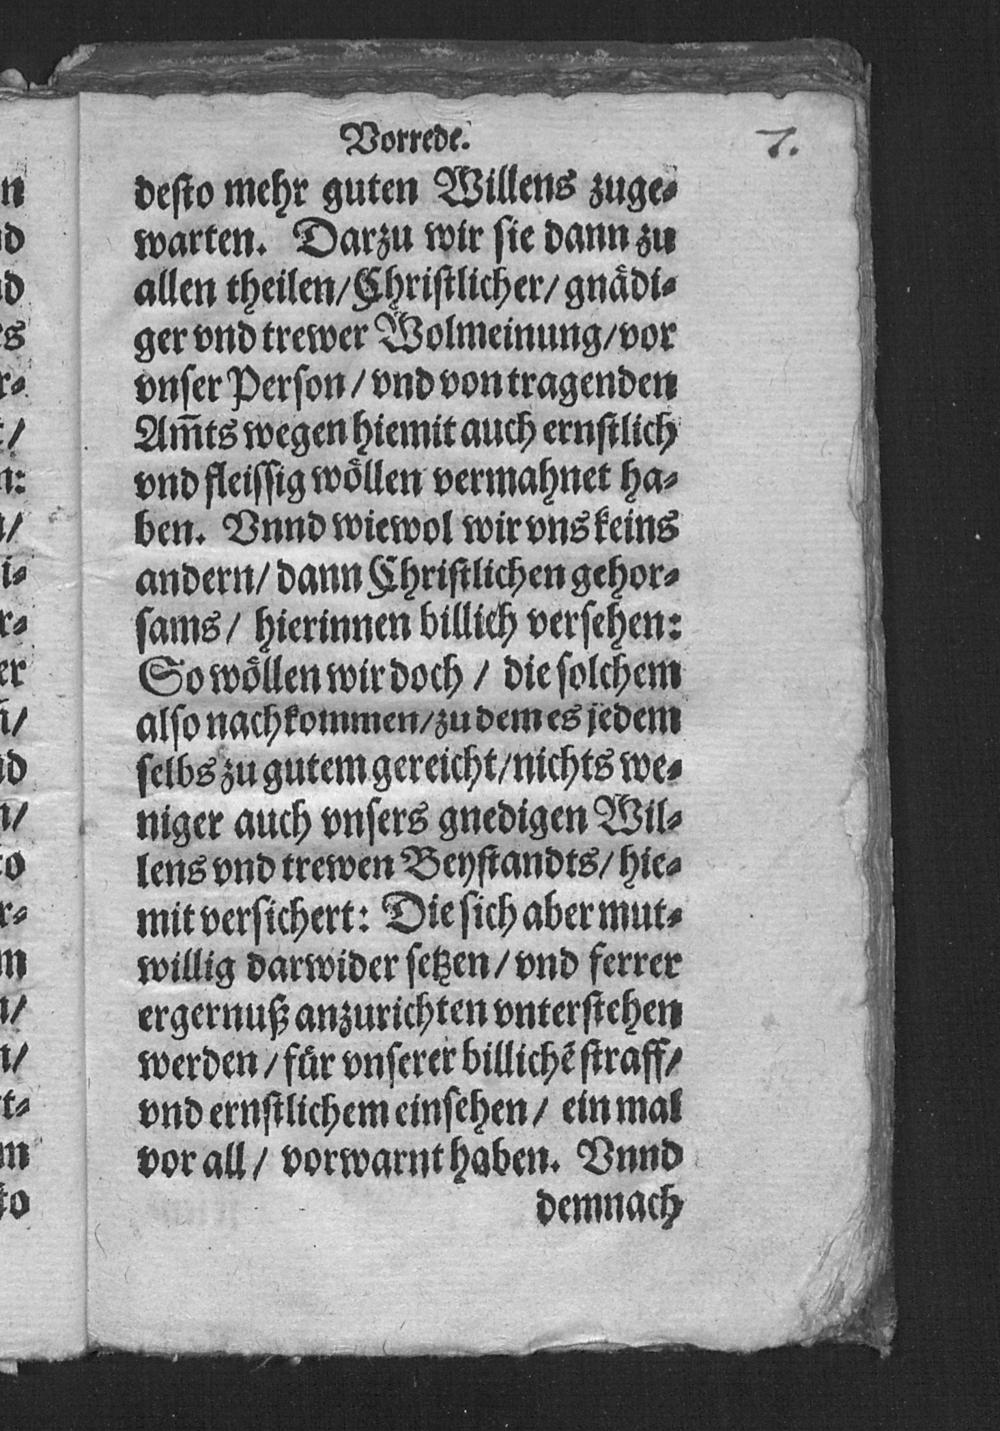 Vorrede.
7.
desto mehr guten Willens zuge⸗
warten. Darzu wir sie dann zu
allen theilen/Christlicher/ gnaͤdi⸗
ger vnd trewer Wolmeinung/vor
vnser Person / vnd von tragenden
Am̃ts wegen hiemit auch ernstlich
vnd fleissig woͤllen vermahnet ha⸗
ben. Vnnd wiewol wir vns keins
andern/ dann Christlichen gehor⸗
sams/ hierinnen billich versehen:
So woͤllen wir doch / die solchem
also nachkommen/zu dem es jedem
selbs zu gutem gereicht/nichts we⸗
niger auch vnsers gnedigen Wil⸗
lens vnd trewen Beystandts/ hie⸗
mit versichert: Die sich aber mut⸗
willig darwider setzen/ vnd ferrer
ergernuß anzurichten vnterstehen
werden / fuͤr vnserer billichẽ straff/
vnd ernstlichem einsehen/ ein mal
vor all/ vorwarnt haben. Vnnd
demnach